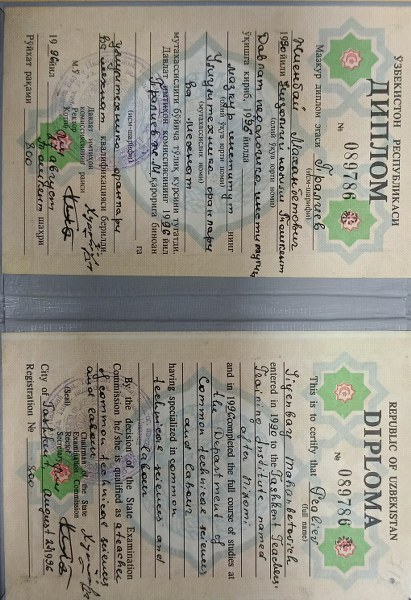 ЎЗБЕКИСТОН РЕСПУБЛИКАСИ
ДИПЛОМ
№ 089786
Мазкур диплом эгаси
(исм-шарифи)
Махамбетович
1990 йили Низомий номли Тошкент
(олий ўқув юрти номи)
Давлат педагогика институти
ўқишга кириб, 1996 йилда
мазкур институт нинг
(олий ўқув юрти номи)
Умумтехника фанлари
(мутахассислик номи)
ва меҳнат
мутахассислиги бўйича тўлиқ курсини тугатди.
Давлат имтиҳон комиссиясининг 1996 йил
қарорига биноан
га
(исм-шарифи)
умумтехника фанлари
ва меҳнат
квалификацияси берилди.
Давлат имтиҳон
комиссиясининг раиси
М.Ў.
Котиб
1996 йил 27 август
Тошкент шаҳри
Рўйхат рақами 800
REPUBLIC OF UZBEKISTAN
DIPLOMA
№ 089786
This is to certify that Iraliev
(full name)
Jiyenbay Mahanbetovich
entered in 1990 to the Tashkent Teachers'
Training Institute named
after Nizomi
and in 1996 completed the full course of studies at
the Department of
Common technical sciences
and labour
having specialized in common
technical sciences and
labour
By the decision of the State Examination
Commission he/she is qualified as a teacher
of common technical sciences
and labour
Chairman of the State
Examination Commission
(Seal)
Rector
Secretary
City of Tashkent, august 27 1996
Registration № 800